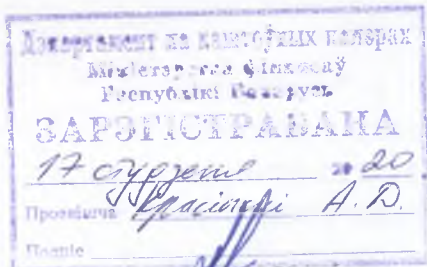 Дэпартамент па каштоўных паперах
Міністэрства фінансаў
Рэспублікі Беларусь
ЗАРЭГІСТРАВАНА
17 студзеня 2020
Прозвішча А. Д.
Подпіс